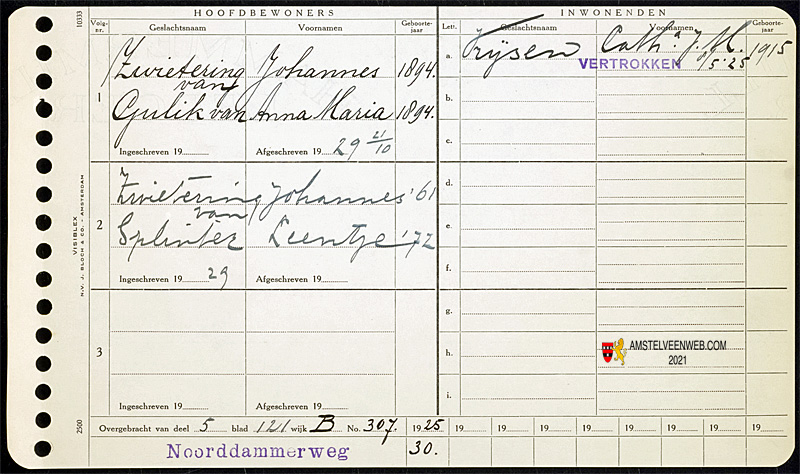 HOOFDBEWONERS
Volg-nr. Geslachtsnaam Voornamen Geboorte-jaar
1 Zwietering Johannes 1894
van
Gulik van Anna Maria 1894.
Ingeschreven 19 Afgeschreven 19 29 21/10
2 Zwietering Johannes '61
van
Splinter Leentje '72
Ingeschreven 19 29 Afgeschreven 19
3
Ingeschreven 19 Afgeschreven 19
INWONENDEN
Lett. Geslachtsnaam Voornamen Geboorte-jaar
a. Cath.a J. M. 1915
VERTROKKEN 5'25
b.
c.
d.
e.
f.
g.
h.
i.
AMSTELVEENWEB.COM
2021
Overgebracht van deel 5 blad 121 wijk B No. 307. 1925 19 19 19 19 19 19 19 19
Noorddammerweg 30.
10333
VISIBLEX
N.V. J. BLOCH & CO. - AMSTERDAM
2500